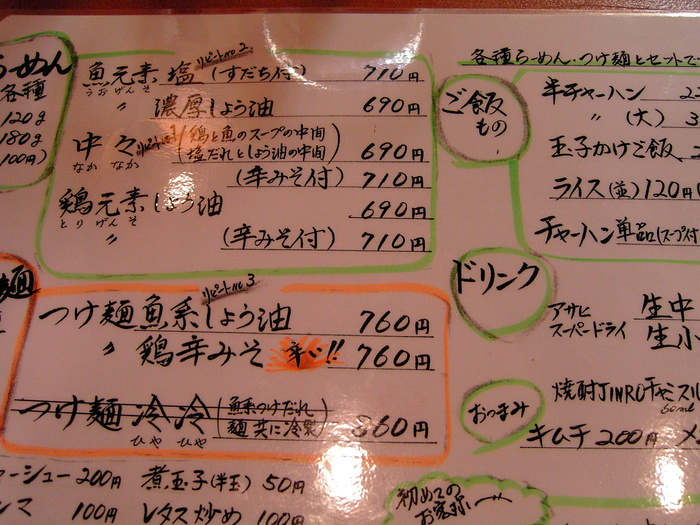 らーめん
各種
120g
180g
100円)
魚元素 塩 (すだち付) 710円
うおげんそ
リピートNo2
〃 濃厚しょう油 690円
中々 (鶏と魚のスープの中間
塩だれとしょう油の中間) 690円
なか なか
(辛みそ付) 710円
鶏元素しょう油 690円
とりげんそ
〃 (辛みそ付) 710円
麺
リピートNo3
つけ麺魚系しょう油 760円
〃 鶏辛みそ 辛い!! 760円
つけ麺 冷冷 (魚系つけだれ
麺 共に冷製) 860円
ひや ひや
チャーシュー200円 煮玉子(半玉) 50円
100円 レタス炒め 100円
各種らーめん・つけ麺とセットで
ご飯
もの
半チャーハン
〃 (大) 3
玉子かけご飯
ライス(並)120円
チャーハン単品(スープ付
ドリンク
アサヒ
スーパードライ
生中
生小
焼酎JINROチャミスル
50ml
おつまみ
キムチ 200円 メ
初めての
お客様へ